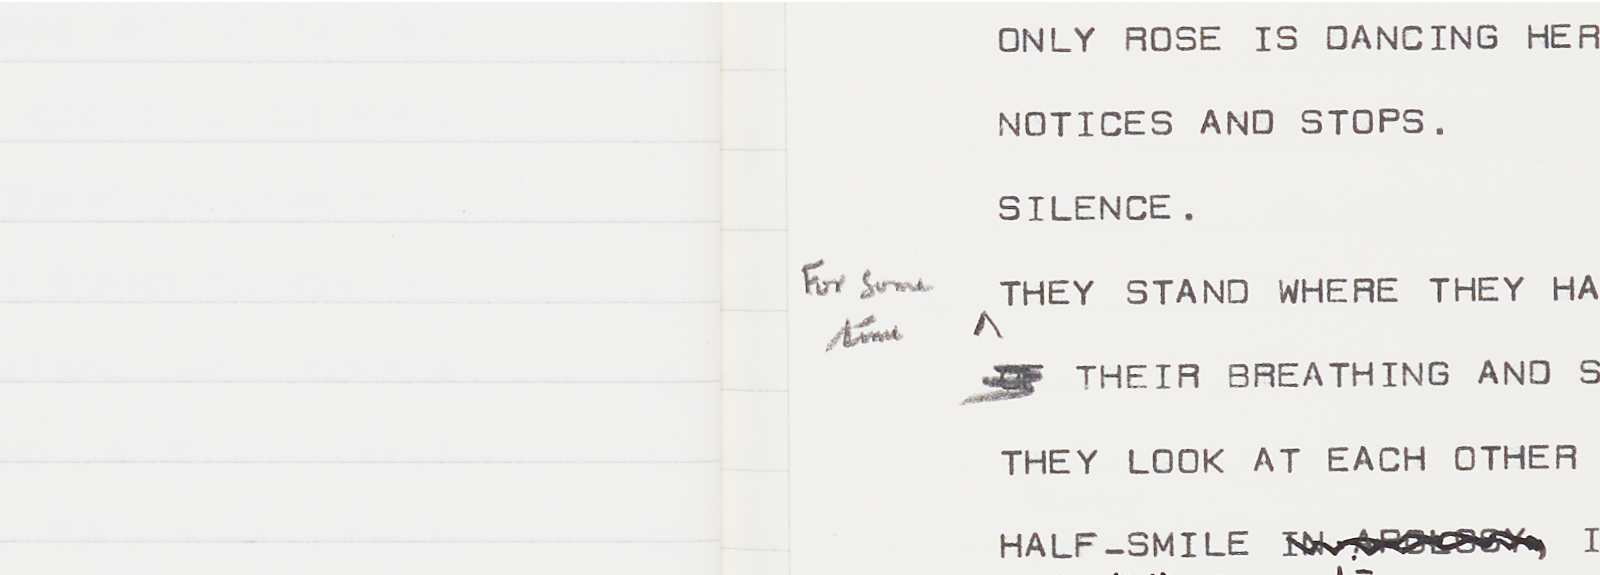 ONLY ROSE IS DANCING HER
NOTICES AND STOPS.
SILENCE.
For some
time
THEY STAND WHERE THEY HA
THEIR BREATHING AND S
THEY LOOK AT EACH OTHER
HALF-SMILE IN APOLOGY, I